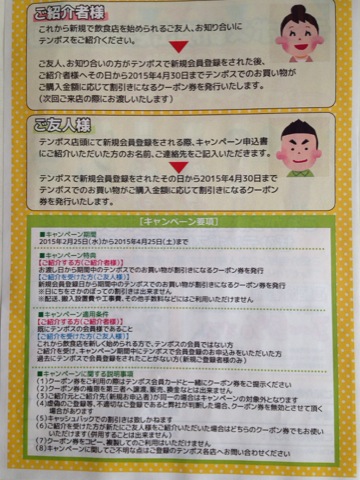 ご紹介者様
これから新規で飲食店を始められるご友人、お知り合いに
テンポスをご紹介ください。
ご友人、お知り合いの方がテンポスで新規会員登録をされた後、
ご紹介者様へその日から2015年4月30日までテンポスでのお買い物が
ご購入金額に応じて割引きになるクーポン券を発行いたします。
(次回ご来店の際にお渡しいたします)
ご友人様
テンポス店頭にて新規会員登録をされる際、キャンペーン申込書
にご紹介いただいた方のお名前、ご連絡先をご記入いただきます。
テンポスで新規会員登録をされたその日から2015年4月30日まで
テンポスでのお買い物がご購入金額に応じて割引きになるクーポン
券を発行いたします。
【キャンペーン要項】
■キャンペーン期間
2015年2月25日(水)から2015年4月25日(土)まで
■キャンペーン特典
【ご紹介する方(ご紹介者様)】
お渡し日から期間中のテンポスでのお買い物が割引きになるクーポン券を発行
【ご紹介を受けた方(ご友人様)】
新規会員登録日から期間中のテンポスでのお買い物が割引きになるクーポン券を発行
※日にちをさかのぼっての割引きは出来ません
※配送、搬入設置費や工事費、その他手数料などにはご利用いただけません
■キャンペーン適用条件
【ご紹介する方(ご紹介者様)】
既にテンポスの会員様であること
【ご紹介を受けた方(ご友人様)】
これから飲食店を新しく始められる方で、テンポスの会員ではない方
ご紹介を受け、キャンペーン期間中にテンポスで会員登録のお申込みをいただいた方
過去にテンポスで会員登録をされたことがない方(新規ご登録者様のみ)
■キャンペーンに関する説明事項
(1)クーポン券をご利用の際はテンポス会員カードと一緒にクーポン券をご提示ください
(2)クーポン券の権限を第三者へ譲渡、販売、換金などは出来ません
(3)ご紹介元とご紹介先(新規お申込者)が同一の場合はキャンペーンの対象外となります
(4)虚偽のご登録等、不適切なご登録であると弊社が判断した場合、クーポン券を無効とさせて頂く
場合があります
(5)キャッシュバックでの割引きは致しかねます
(6)ご紹介を受けた方が新たにご友人様をご紹介いただいた場合はどちらのクーポン券でもお使い
いただけます(併用することは出来ません)
(7)クーポン券をコピー、複製してのご利用はいただけません
(8)キャンペーンに関してご不明な点はご登録のテンポス各店へお問い合わせください